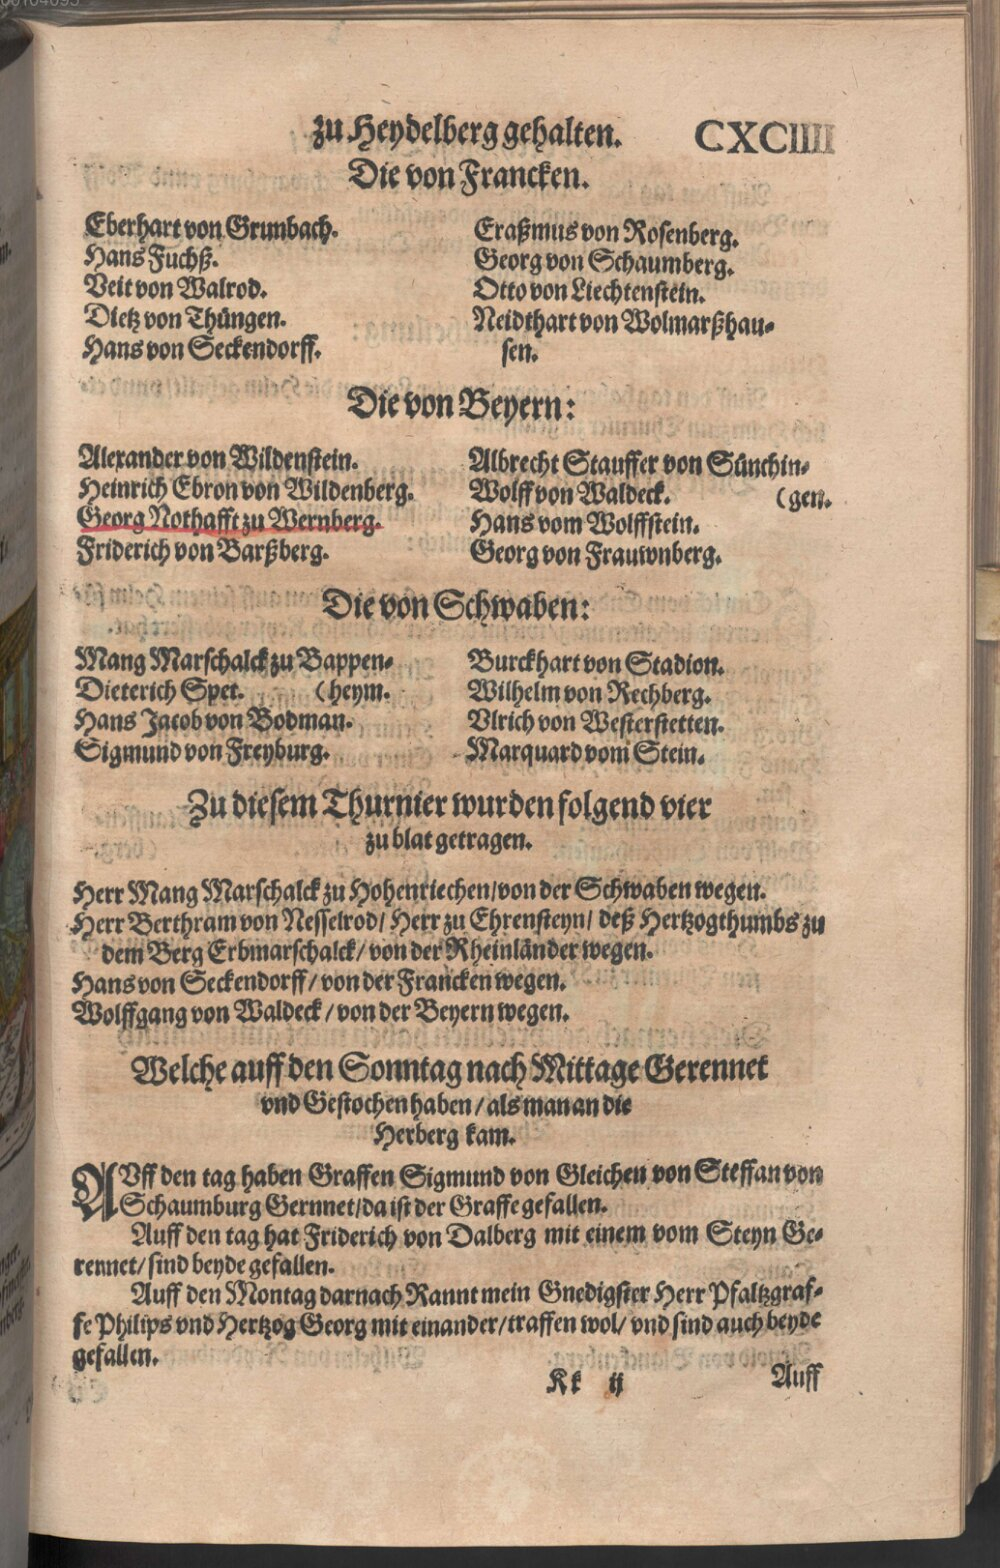 zu Heydelberg gehalten. CXCIIII
Die von Francken.
Eberhart von Grumbach.
Hans Fuchß.
Veit von Walrod.
Dietz von Thüngen.
Hans von Seckendorff.
Eraßmus von Rosenberg.
Georg von Schaumberg.
Otto von Liechtenstein.
Neidthart von Wolmarßhau-
sen.
Die von Beyern:
Alexander von Wildenstein.
Heinrich Ebron von Wildenberg.
Georg Nothafft zu Wernberg.
Friderich von Barßberg.
Albrecht Stauffer von Sünchin-
Wolff von Waldeck. (gen.
Hans vom Wolffstein.
Georg von Frauwnberg.
Die von Schwaben:
Mang Marschalck zu Bappen-
Dieterich Spet. (heym.
Hans Jacob von Bodman.
Sigmund von Freyburg.
Burckhart von Stadion.
Wilhelm von Rechberg.
Vlrich von Westerstetten.
Marquard vom Stein.
Zu diesem Thurnier wurden folgend vier
zu blat getragen.
Herr Mang Marschalck zu Hohenriechen/von der Schwaben wegen.
Herr Berthram von Nesselrod/ Herr zu Ehrensteyn/ deß Hertzogthumbs zu
dem Berg Erbmarschalck/ von der Rheinländer wegen.
Hans von Seckendorff/ von der Francken wegen.
Wolffgang von Waldeck/ von der Beyern wegen.
Welche auff den Sonntag nach Mittage Gerennet
vnd Gestochen haben/ als man an die
Herberg kam.
AVff den tag haben Graffen Sigmund von Gleichen von Steffan von
Schaumburg Gernnet/da ist der Graffe gefallen.
Auff den tag hat Friderich von Dalberg mit einem vom Steyn Ge-
rennet/ sind beyde gefallen.
Auff den Montag darnach Rannt mein Gnedigster Herr Pfaltzgraf-
fe Philips vnd Hertzog Georg mit einander/traffen wol/ vnd sind auch beyde
gefallen.
Kk ij Auff